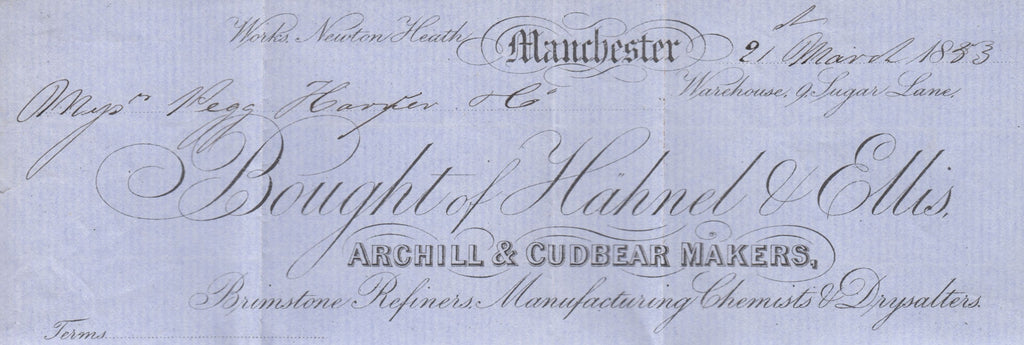 Works, Newton Heath, Manchester 21st March 1883
Warehouse, 9, Sugar Lane,
Messrs Pegg Harper & Co
Bought of Hähnel & Ellis,
ARCHILL & CUDBEAR MAKERS,
Brimstone Refiners, Manufacturing Chemists & Drysalters.
Terms